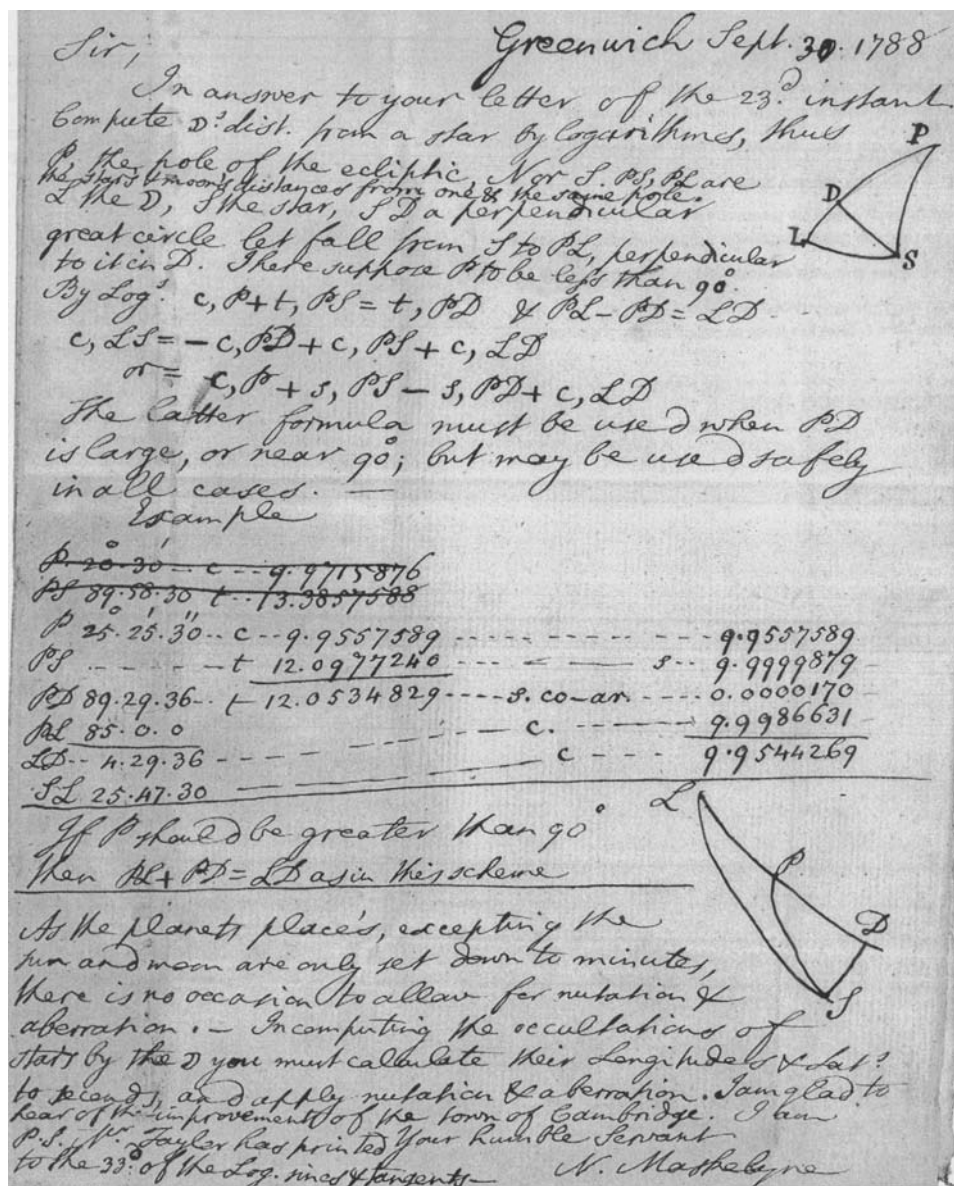 Greenwich Sept. 30. 1788
Sir,
In answer to your letter of the 23.d instant
Compute ☽s dist. from a star by logarithms, thus
P, the pole of the ecliptic, N or S. PS, PL are
the star's & moon's distances from one & the same pole.
L the ☽, S the star, SD a perpendicular
great circle let fall from S to PL, perpendicular
to it in D. There suppose P to be less than 90°.
By Logs. c, P + t, PS = t, PD & PL - PD = LD
c, LS = - c, PD + c, PS + c, LD
or = c, P + s, PS - s, PD + c, LD
The latter formula must be used when PD
is large, or near 90°; but may be used safely
in all cases.
Example
P. 20°.30' - c -- 9.9715876
PS 89.58.30 t -- 13.3857588
P 25°.25'.30'' -- c -- 9.9557589 ---- 9.9557589
PS ---- t 12.0977240 ---- s -- 9.9999879
PD 89.29.36 -- t 12.0534829 ---- s. co-ar. ---- 0.0000170
PL 85. 0. 0 ---- c. ---- 9.9986631
LD -- 4.29.36 ---- c ---- 9.9544269
SL 25.47.30
If P should be greater than 90°
then PL + PD = LD as in this scheme
As the planets place's, excepting the
sun and moon are only set down to minutes,
there is no occasion to allow for nutation &
aberration. - In computing the occultations of
stars by the ☽ you must calculate their Longitudes & Lats.
to seconds, and apply nutation & aberration. I am glad to
hear of the improvements of the town of Cambridge. I am
Your humble Servant
N. Maskelyne
P.S. Mr. Taylor has printed
to the 33° of the Log. sines & tangents -
P
D
L
S
L
P
D
S